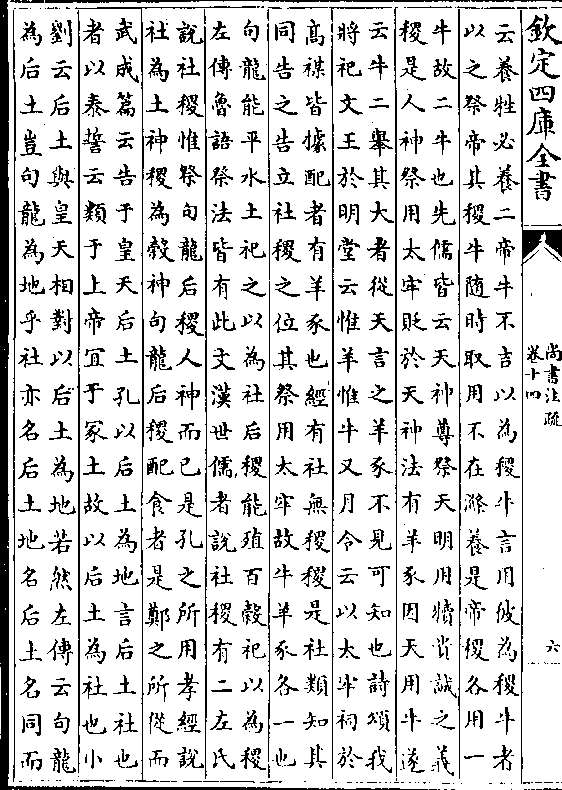 欽定四庫全書
尚書注疏
卷十四
六
云養牲必養二帝牛不吉以為稷牛言用彼為稷牛者
以之祭帝其稷牛隨時取用不在滌養是帝稷各用一
牛故二牛也先儒皆云天神尊祭天明用犢貴誠之義
稷是人神祭用太牢貶於天神法有羊豕因天用牛遂
云牛二舉其大者從天言之羊豕不見可知也詩頌我
將祀文王於明堂云惟羊惟牛又月令云以太牢祠於
髙禖皆據配者有羊豕也經有社無稷稷是社類知其
同告之告立社稷之位其祭用太牢故牛羊豕各一也
句龍能平水土祀之以為社后稷能殖百榖祀以為稷
左傳魯語祭法皆有此文漢世儒者說社稷有二左氏
說社稷惟祭句龍后稷人神而已是孔之所用孝經說
社為土神稷為榖神句龍后稷配食者是鄭之所從而
武成篇云告于皇天后土孔以后土為地言后土社也
者以泰誓云類于上帝宜于冢土故以后土為社也小
劉云后土與皇天相對以后土為地若然左傳云句龍
為后土豈句龍為地乎社亦名后土地名后土名同而